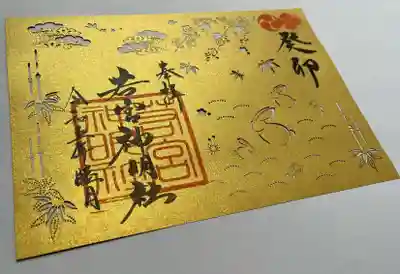 癸卯
奉拝
若宮神明社
令和五年睦月